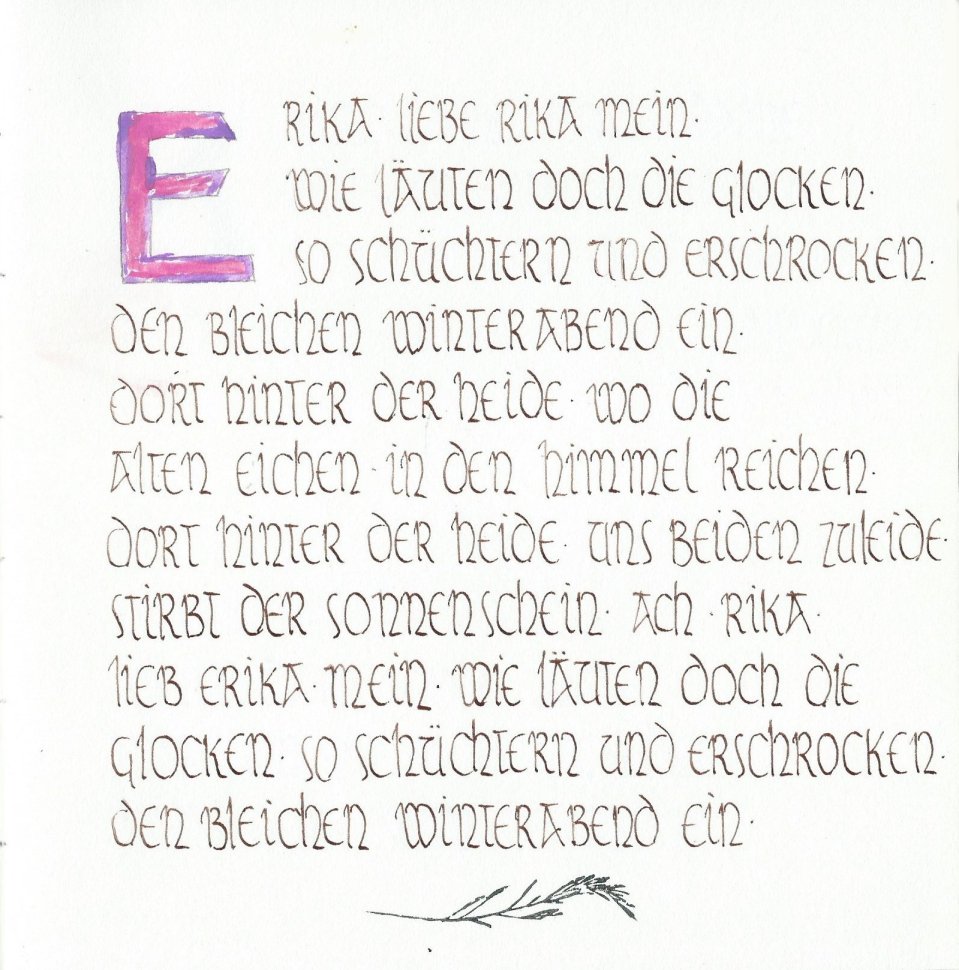 ERIKA· liebe RIKA mein·
wie läuten doch die Glocken·
so schüchtern und erschrocken·
den bleichen Winterabend ein·
dort hinter der Heide· wo die
alten Eichen· in den Himmel reichen·
dort hinter der Heide· uns beiden zuleide·
stirbt der Sonnenschein· Ach· Rika·
lieb Erika· mein· wie läuten doch die
Glocken· so schüchtern und erschrocken·
den bleichen Winterabend ein·